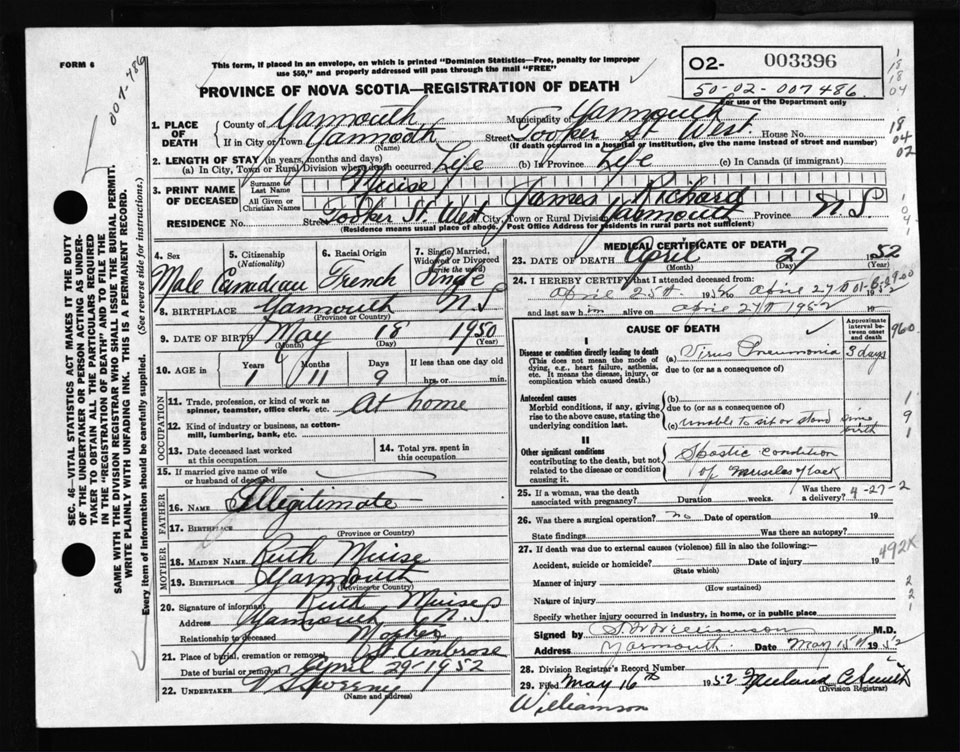 FORM 6
007-486
This form, if placed in an envelope, on which is printed "Dominion Statistics—Free, penalty for improper
use $50," and properly addressed will pass through the mail "FREE"
PROVINCE OF NOVA SCOTIA—REGISTRATION OF DEATH
02- 003396
50-02-007486.
For use of the Department only
1. PLACE OF DEATH
County of Yarmouth Municipality of Yarmouth
If in City or Town Yarmouth Street Tooker St. West. House No.
(Name) (If death occurred in a hospital or institution, give the name instead of street and number)
2. LENGTH OF STAY (in years, months and days)
(a) In City, Town or Rural Division where death occurred Life (b) in Province Life (c) in Canada (if immigrant)
3. PRINT NAME OF DECEASED
Surname or Last Name Muise
All Given or Christian Names James Richard
RESIDENCE No. Street Tooker St. West City, Town or Rural Division Yarmouth Province N.S.
(Residence means usual place of abode. Post Office Address for residents in rural parts not sufficient)
4. Sex Male
5. Citizenship (Nationality) Canadian
6. Racial Origin French
7. Single, Married, Widowed or Divorced (write the word) Single
8. BIRTHPLACE Yarmouth N.S
(Province or Country)
9. DATE OF BIRTH May 18 1950
(Month) (Day) (Year)
10. AGE in Years 1 Months 11 Days 9 If less than one day old hrs. or min.
OCCUPATION
11. Trade, profession, or kind of work as spinner, teamster, office clerk, etc. At home
12. Kind of industry or business, as cotton-mill, lumbering, bank, etc.
13. Date deceased last worked at this occupation
14. Total yrs. spent in this occupation
15. If married give name of wife or husband of deceased
FATHER
16. Name Illegitimate
17. Birthplace
(Province or Country)
MOTHER
18. MAIDEN NAME Ruth Muise
19. BIRTHPLACE Yarmouth
(Province or Country)
20. Signature of informant Ruth Muise
Address Yarmouth N.S
Relationship to deceased Mother
21. Place of burial, cremation or removal St Ambrose
Date of burial or removal April 29-1952
22. UNDERTAKER V S Sweeny
(Name and address)
MEDICAL CERTIFICATE OF DEATH
23. DATE OF DEATH April 27 1952
(Month) (Day) (Year)
24. I HEREBY CERTIFY that I attended deceased from:
April 25th 1952 to April 27th 1952
and last saw him alive on April 27th 1952 19
CAUSE OF DEATH
Approximate interval between onset and death
I
Disease or condition directly leading to death
(This does not mean the mode of dying, e.g., heart failure, asthenia, etc. It means the disease, injury, or complication which caused death.)
(a) Virus Pneumonia 3 days
due to (or as a consequence of)
Antecedent causes
Morbid conditions, if any, giving rise to the above cause, stating the underlying condition last.
(b)
due to (or as a consequence of)
(c) unable to sit or stand since birth
II
Other significant conditions
contributing to the death, but not related to the disease or condition causing it.
Spastic condition
of muscles of back
25. If a woman, was the death associated with pregnancy? Duration weeks. Was there a delivery? 4-27-2
26. Was there a surgical operation? no Date of operation 19
State findings Was there an autopsy?
27. If death was due to external causes (violence) fill in also the following:—
492X
Accident, suicide or homicide? Date of injury 19
(State which)
Manner of injury
(How sustained)
Nature of injury
Specify whether injury occurred in industry, in home, or in public place
Signed by Williamson M.D.
Address Yarmouth Date May 15th 1952
28. Division Registrar's Record Number
29. Filed May 16th 1952
(Division Registrar)
Williamson
SEC. 46—VITAL STATISTICS ACT MAKES IT THE DUTY
OF THE UNDERTAKER OR PERSON ACTING AS UNDER-
TAKER TO OBTAIN ALL THE PARTICULARS REQUIRED
IN THE "REGISTRATION OF DEATH" AND TO FILE THE
SAME WITH THE DIVISION REGISTRAR WHO SHALL ISSUE THE BURIAL PERMIT.
WRITE PLAINLY WITH UNFADING INK. THIS IS A PERMANENT RECORD.
Every item of information should be carefully supplied. (See reverse side for instructions.)
18
18
04
18
04
02
960
1
9
1
2
2
1